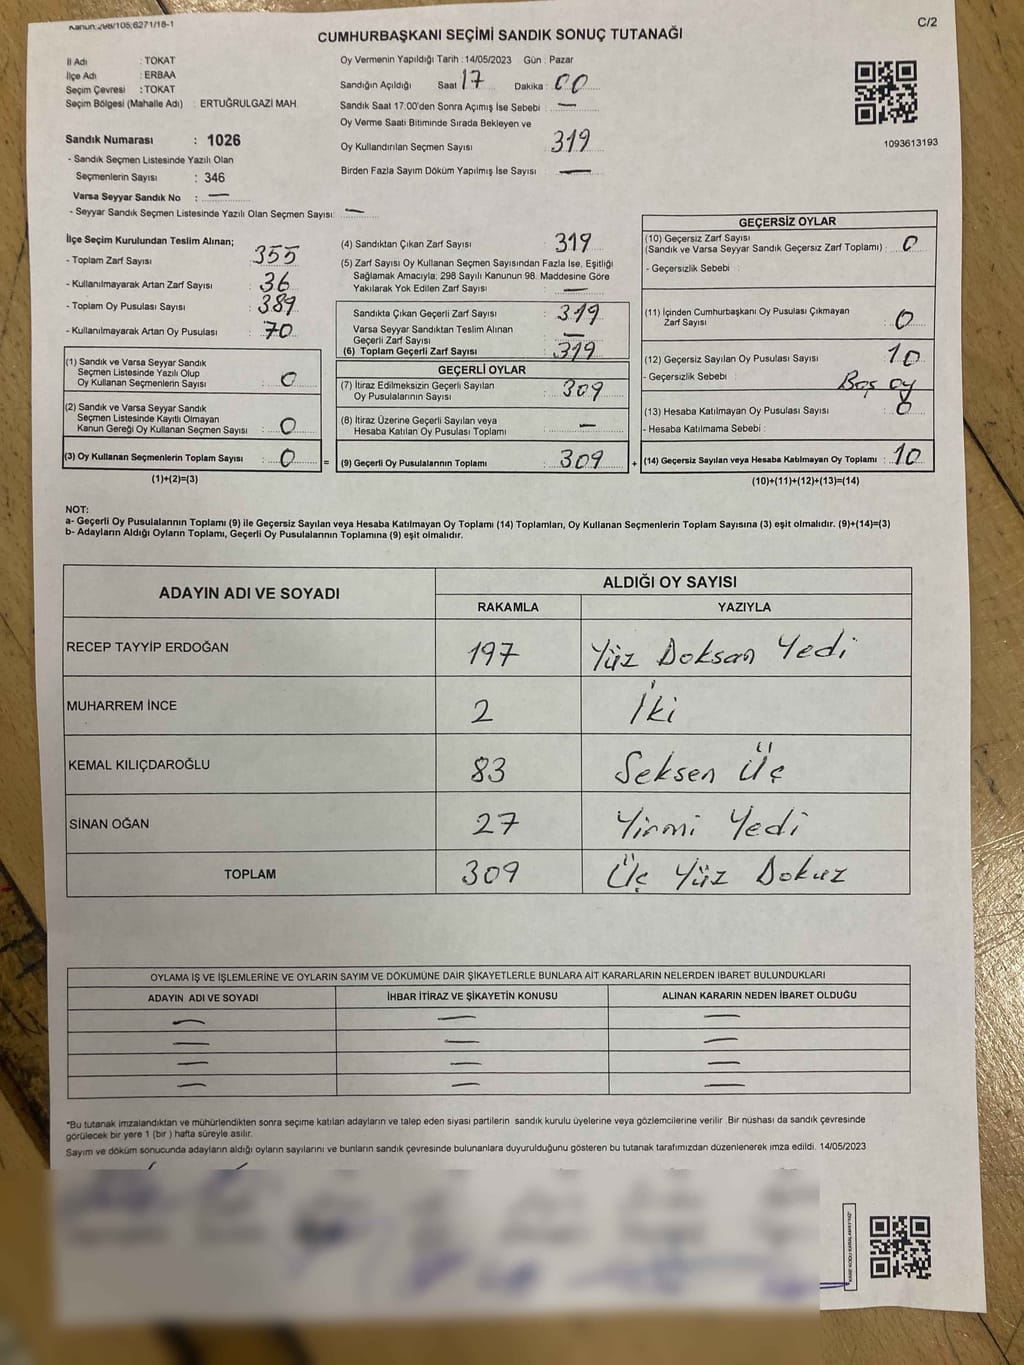 Kanun:298/105;6271/18-1
C/2
CUMHURBAŞKANI SEÇİMİ SANDIK SONUÇ TUTANAĞI
İl Adı : TOKAT
İlçe Adı : ERBAA
Seçim Çevresi : TOKAT
Seçim Bölgesi (Mahalle Adı) : ERTUĞRULGAZİ MAH.
Sandık Numarası : 1026
- Sandık Seçmen Listesinde Yazılı Olan
Seçmenlerin Sayısı : 346
Varsa Seyyar Sandık No : —
- Seyyar Sandık Seçmen Listesinde Yazılı Olan Seçmen Sayısı: —
Oy Vermenin Yapıldığı Tarih : 14/05/2023 Gün : Pazar
Sandığın Açıldığı Saat 17 Dakika : 00
Sandık Saat 17:00'den Sonra Açımış İse Sebebi : —
Oy Verme Saati Bitiminde Sırada Bekleyen ve
Oy Kullandırılan Seçmen Sayısı : 319
Birden Fazla Sayım Döküm Yapılmış İse Sayısı : —
1093613193
İlçe Seçim Kurulundan Teslim Alınan;
- Toplam Zarf Sayısı : 355
- Kullanılmayarak Artan Zarf Sayısı : 36
- Toplam Oy Pusulası Sayısı : 389
- Kullanılmayarak Artan Oy Pusulası : 70
(1) Sandık ve Varsa Seyyar Sandık
Seçmen Listesinde Yazılı Olup
Oy Kullanan Seçmenlerin Sayısı : 0
(2) Sandık ve Varsa Seyyar Sandık
Seçmen Listesinde Kayıtlı Olmayan
Kanun Gereği Oy Kullanan Seçmen Sayısı : 0
(3) Oy Kullanan Seçmenlerin Toplam Sayısı : 0
(1)+(2)=(3)
(4) Sandıktan Çıkan Zarf Sayısı : 319
(5) Zarf Sayısı Oy Kullanan Seçmen Sayısından Fazla İse, Eşitliği
Sağlamak Amacıyla; 298 Sayılı Kanunun 98. Maddesine Göre
Yakılarak Yok Edilen Zarf Sayısı : —
Sandıkta Çıkan Geçerli Zarf Sayısı : 319
Varsa Seyyar Sandıktan Teslim Alınan
Geçerli Zarf Sayısı : —
(6) Toplam Geçerli Zarf Sayısı : 319
GEÇERLİ OYLAR
(7) İtiraz Edilmeksizin Geçerli Sayılan
Oy Pusulalarının Sayısı : 309
(8) İtiraz Üzerine Geçerli Sayılan veya
Hesaba Katılan Oy Pusulası Toplamı : —
= (9) Geçerli Oy Pusulalarının Toplamı : 309 +
GEÇERSİZ OYLAR
(10) Geçersiz Zarf Sayısı
(Sandık ve Varsa Seyyar Sandık Geçersiz Zarf Toplamı) : 0
- Geçersizlik Sebebi :
(11) İçinden Cumhurbaşkanı Oy Pusulası Çıkmayan
Zarf Sayısı : 0
(12) Geçersiz Sayılan Oy Pusulası Sayısı : 10
- Geçersizlik Sebebi : Boş oy
(13) Hesaba Katılmayan Oy Pusulası Sayısı : 0
- Hesaba Katılmama Sebebi :
(14) Geçersiz Sayılan veya Hesaba Katılmayan Oy Toplamı : 10
(10)+(11)+(12)+(13)=(14)
NOT:
a- Geçerli Oy Pusulalarının Toplamı (9) ile Geçersiz Sayılan veya Hesaba Katılmayan Oy Toplamı (14) Toplamları, Oy Kullanan Seçmenlerin Toplam Sayısına (3) eşit olmalıdır. (9)+(14)=(3)
b- Adayların Aldığı Oyların Toplamı, Geçerli Oy Pusulalarının Toplamına (9) eşit olmalıdır.
ADAYIN ADI VE SOYADI
ALDIĞI OY SAYISI
RAKAMLA YAZIYLA
RECEP TAYYİP ERDOĞAN 197 Yüz Doksan Yedi
MUHARREM İNCE 2 İki
KEMAL KILIÇDAROĞLU 83 Seksen Üç
SİNAN OĞAN 27 Yirmi Yedi
TOPLAM 309 Üç Yüz Dokuz
OYLAMA İŞ VE İŞLEMLERİNE VE OYLARIN SAYIM VE DÖKÜMÜNE DAİR ŞİKAYETLERLE BUNLARA AİT KARARLARIN NELERDEN İBARET BULUNDUKLARI
ADAYIN ADI VE SOYADI İHBAR İTİRAZ VE ŞİKAYETİN KONUSU ALINAN KARARIN NEDEN İBARET OLDUĞU
— — —
— — —
— — —
— — —
*Bu tutanak imzalandıktan ve mühürlendikten sonra seçime katılan adayların ve talep eden siyasi partilerin sandık kurulu üyelerine veya gözlemcilerine verilir. Bir nüshası da sandık çevresinde
görülecek bir yere 1 (bir ) hafta süreyle asılır.
Sayım ve döküm sonucunda adayların aldığı oyların sayılarını ve bunların sandık çevresinde bulunanlara duyurulduğunu gösteren bu tutanak tarafımızdan düzenlenerek imza edildi. 14/05/2023